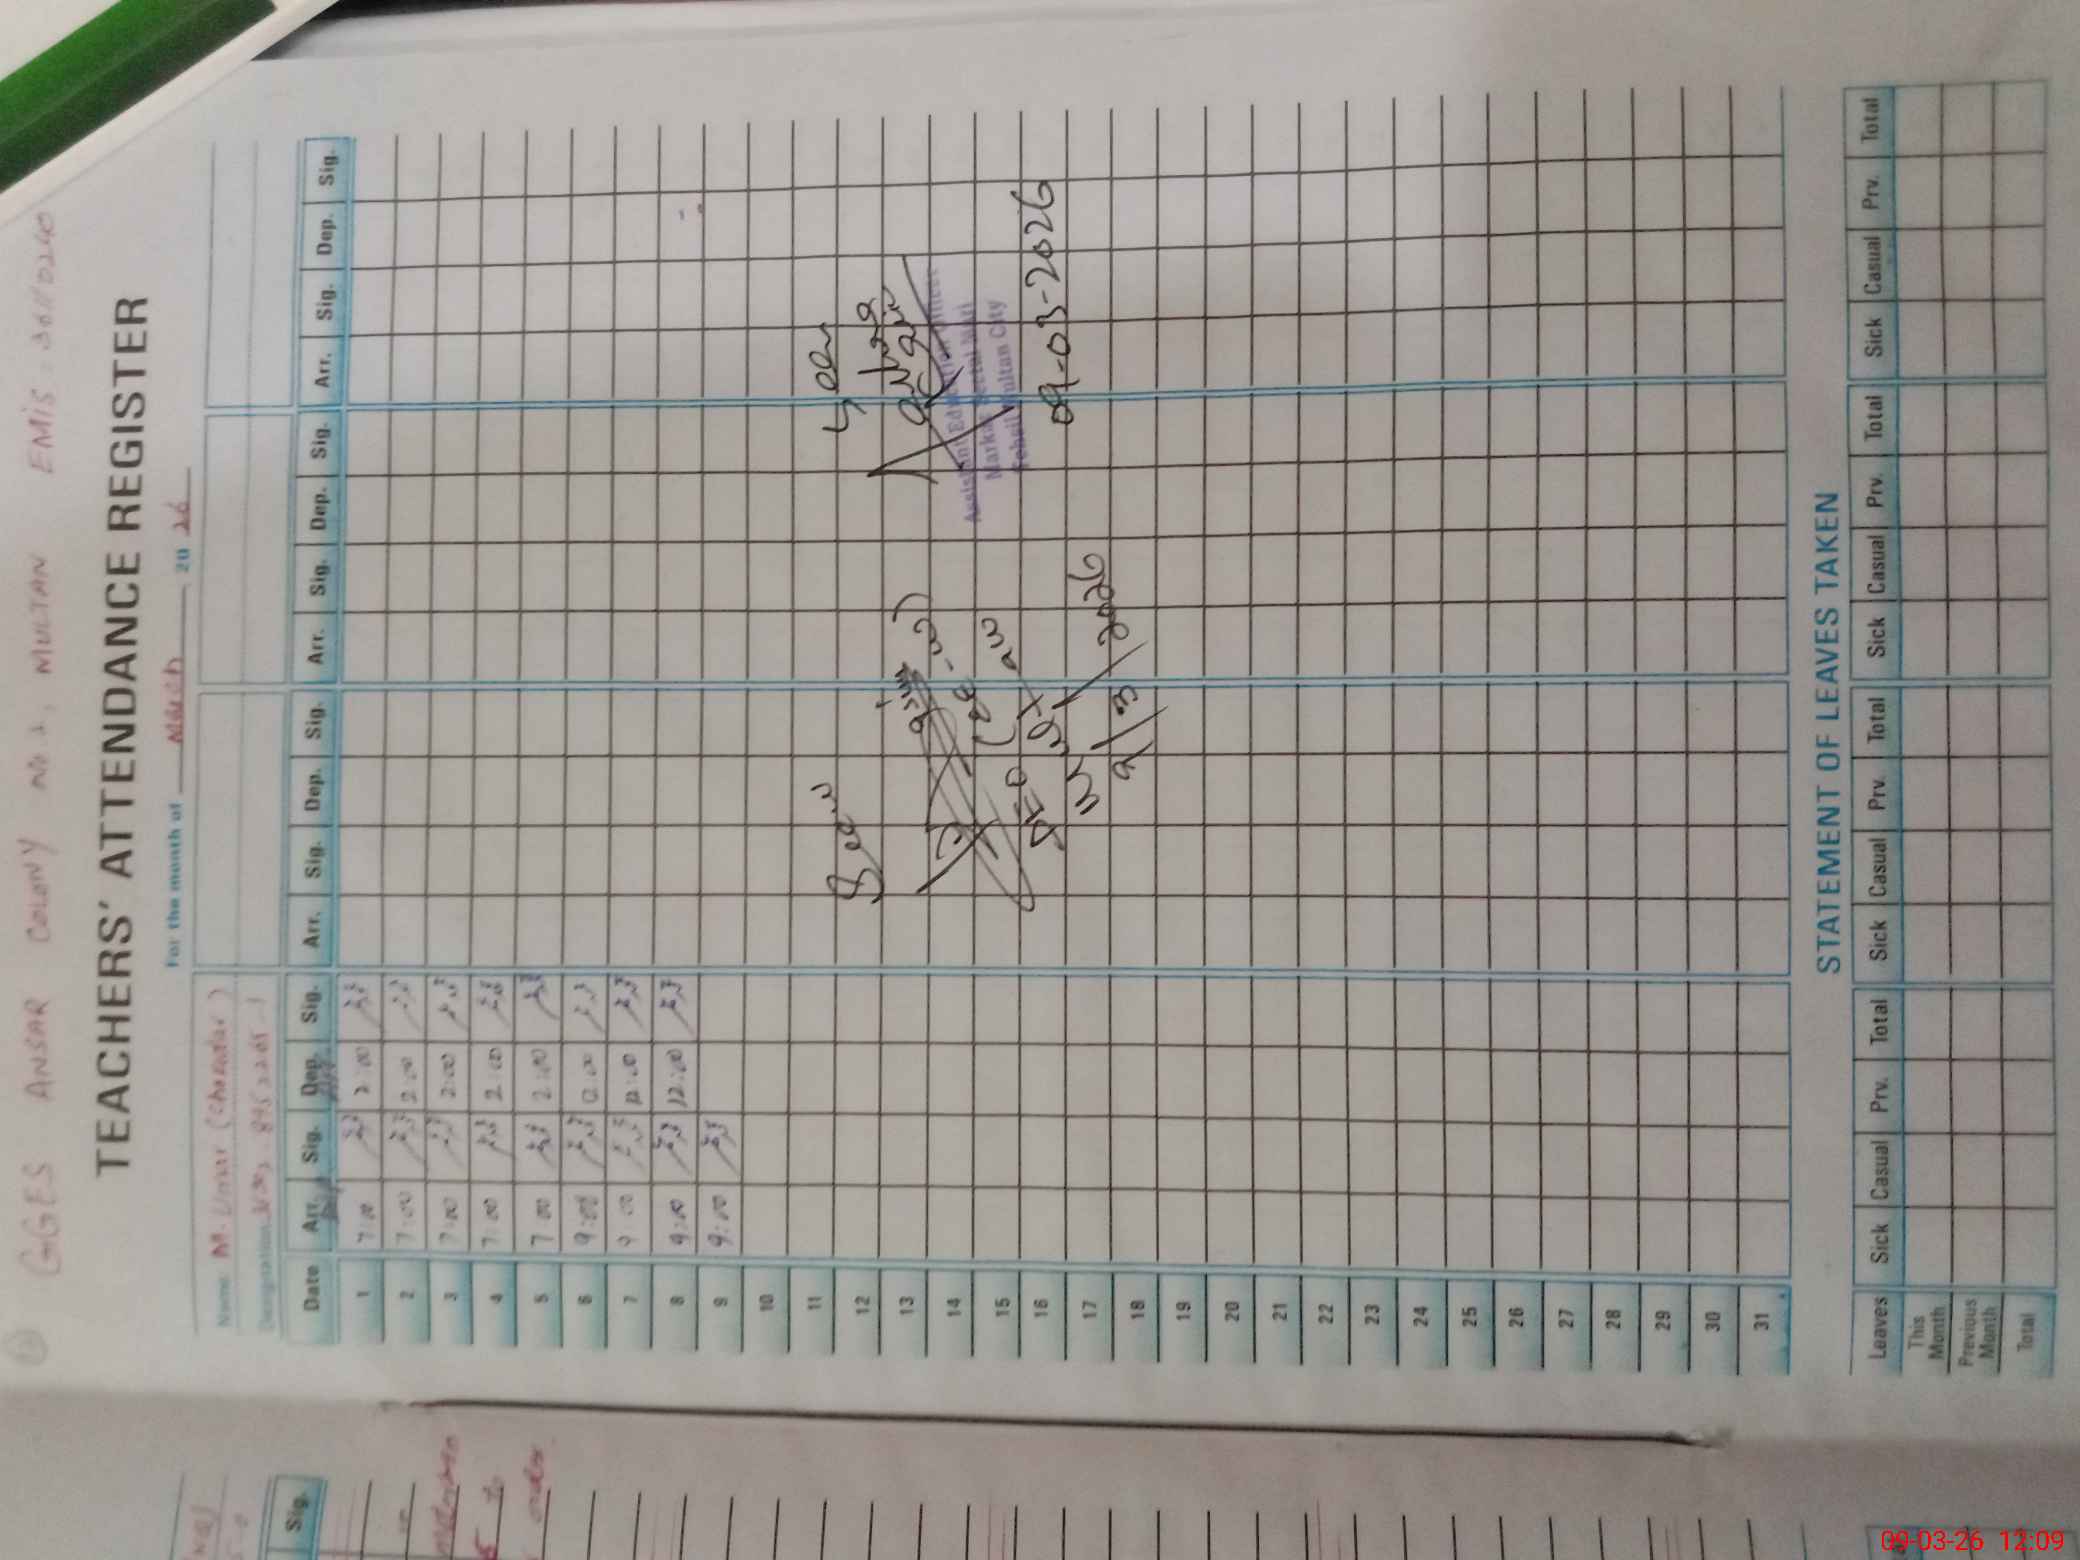 GGES ANSAR COLONY No. 2, MULTAN EMIS - 36110240
TEACHERS' ATTENDANCE REGISTER
For the month of March 20 26
Name M. Umar (Chokidar)
Designation
Date Arr. Sig. Dep. Sig. Arr. Sig. Dep. Sig. Arr. Sig. Dep. Sig. Arr. Sig. Dep. Sig.
1 7:00 2:00
2 7:00 2:00
3 7:00 2:00
4 7:00 2:00
5 7:00 2:00
6 9:00 12:00
7 9:00 12:00
8 9:00 12:00
9 9:00
10
11
12
13
14
15
16
17
18
19
20
21
22
23
24
25
26
27
28
29
30
31
Seen
DEO (EE-W)
9/3/2026
Seen
Assistant Education Officer
Tehsil Multan City
09-03-2026
STATEMENT OF LEAVES TAKEN
Leaves Sick Casual Prv. Total Sick Casual Prv. Total Sick Casual Prv. Total Sick Casual Prv. Total
This Month
Previous Month
Total
Sig.
09-03-26 12:09